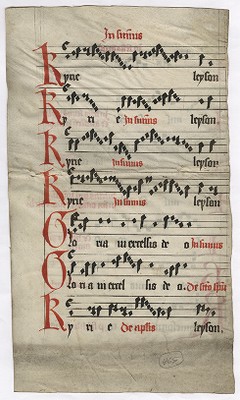 In sūmis
Kyrie leyson
Kyri e In sūmis leyson
Kyrie In sūmis leyson
Kyrie In sūmis leyson
Gloria in excelsis de o In sūmis
Gloria in excelsis de o. De sctō spū
Kyri e De aplis leyson.